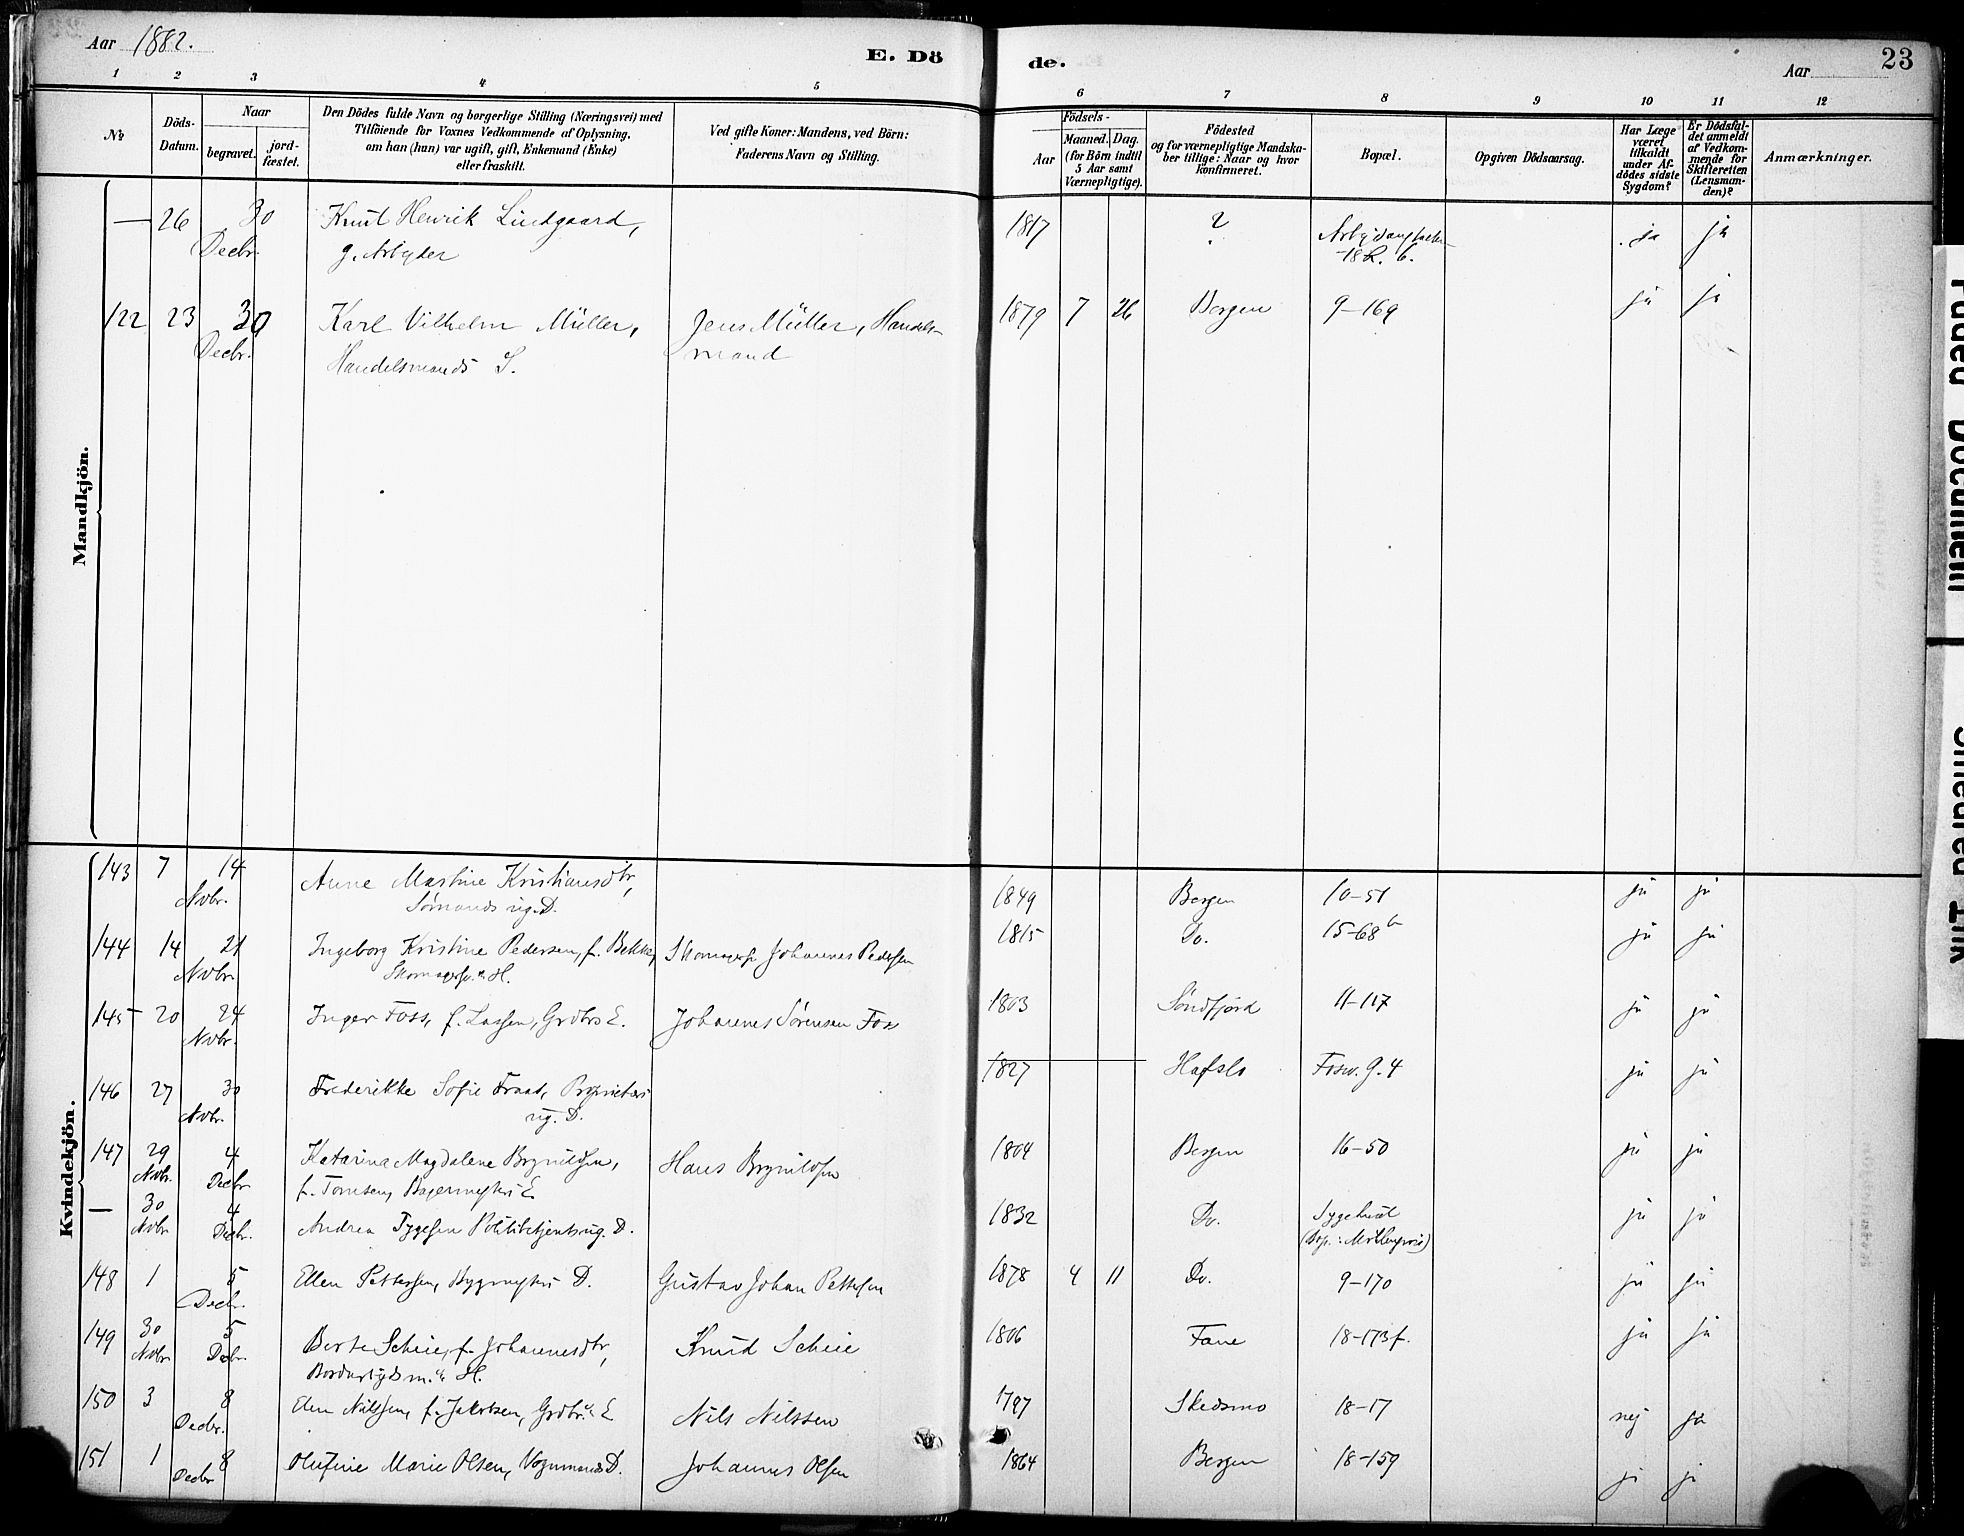 Aar 1882.
E. Dö
de.
Aar
23
1 2 3 4 5 6 7 8 9 10 11 12
No
Döds-Datum.
Naar
begravet.
jord-fæstet.
Den Dödes fulde Navn og borgerlige Stilling (Næringsvei) med
Tilföiende for Voxnes Vedkommende af Oplysning,
om han (hun) var ugift, gift, Enkemand (Enke)
eller fraskilt.
Ved gifte Koner: Mandens, ved Börn:
Faderens Navn og Stilling.
Födsels-
Aar
Maaned. Dag.
(for Börn indtil
5 Aar samt
Værnepligtige).
Födested
og for værnepligtige Mandska-
ber tillige: Naar og hvor
konfirmeret.
Bopæl.
Opgiven Dödsaarsag.
Har Læge
været
tilkaldt
under Af-
dödes sidste
Sygdom?
Er Dödsfal-
det anmeldt
af Vedkom-
mende for
Skifteretten
(Lensman-
den)?
Anmærkninger.
Mandkjön.
— 26 30 Knut Henrik Lindgaard, 1817 ? ja ja
Decbr. g. Arbyder 18 R. 6.
122 23 30 Karl Vilhelm Müller, Jens Müller, Handels- 1879 7 26 Bergen 9-169 ja ja
Decbr. Handelsmands S. mand
Kvindekjön.
143 7 14 Anne Martine Kristiansdtr, 1849 Bergen 10-51 ja ja
Nvbr. Sømands ug. D.
144 14 21 Ingeborg Kristine Pedersen, f. Bekke, Johannes Pedersen 1815 Do. 15-68b ja ja
Nvbr. H.
145 20 24 Inger Foss, f. Lassen, Grdbrs E. Johannes Sørensen Foss 1803 Søndfjord 11-117 ja ja
Nvbr.
146 27 30 Frederikke Sofie ug. D. 1827 Hafslo 9.4 ja ja
Nvbr.
147 29 4 Katarina Magdalene Brynildsen, Hans Brynildsen 1804 Bergen 16-50 ja ja
Nvbr. Decbr f. Tomsen, Bagermesters E
— 30 4 Andrea Tygesen Politibetjents ug. D. 1832 Do. Sygehust ja ja
Nvbr Decbr. (Bop.: Møllenpris)
148 1 5 Ellen Pettersen, Bygmesters D. Gustav Johan Pettersen 1878 4 11 Do. 9-170 ja ja
Decbr.
149 30 5 Berte Scheie, f. Johannesdtr, Knud Scheie 1806 Fane 18-173f. ja ja
Nvbr Decbr. H.
150 3 8 Elen Nilssen, f. Jakobsen, Grdbrs E Nils Nilssen 1797 Skedsmo 18-17 nej ja
Decbr.
151 1 8 Olufine Marie Olsen, Vognmands D. Johannes Olsen 1864 Bergen 18-159 ja ja
Decbr
Faded Document
Smeared Ink